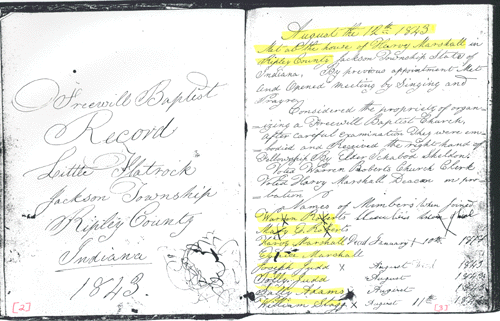 Freewill Baptist
Record
Little Flatrock
Jackson Township
Ripley County
Indiana
1843.
[2]
August the 12th 1843
Met at the house of Harvy Marshall in
Ripley County Jackson Township State of
Indiana, By previous appointment Met
And Opened Meeting by Singing and
Prayer
Considered the propriety of organ-
izing a Freewill Baptist Church,
after careful examination they were em-
bodied and received the right hand of
Fellowship By Elder Ichabod Sheldon.
Voted Warren Roberts Church Clerk
Voted Harvy Marshall Deacon on pro-
bation
Names of Members when joined
Warren Roberts
Mary E. Roberts
Harvy Marshall Died January 10th
Marshall
Joseph Judd x August 1843
Polly Judd August
Sally Adams x August
William x August 11th
[3]